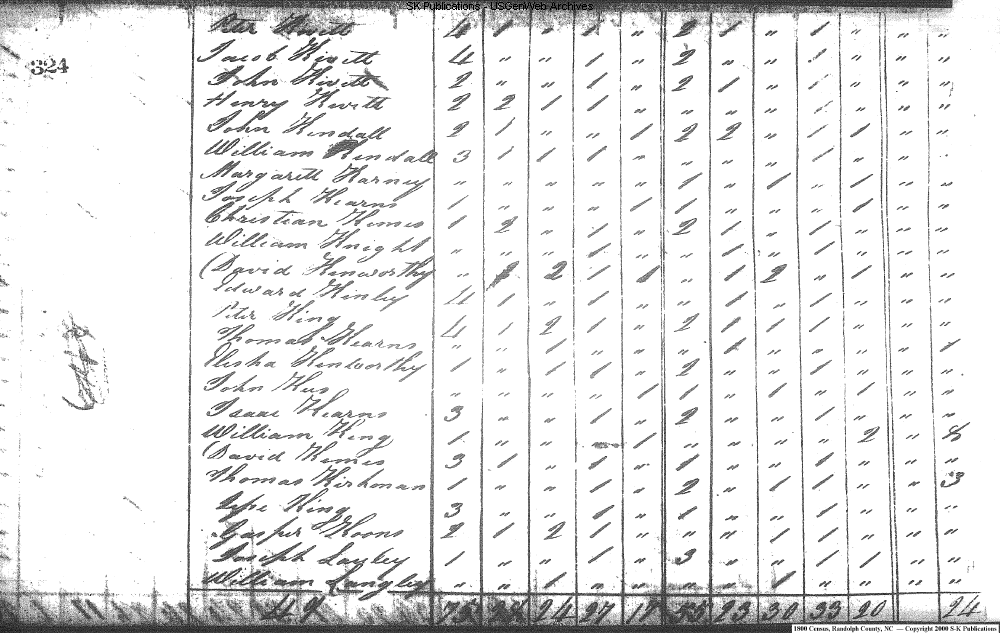 SK Publications - USGenWeb Archives
Peter Kivett 4 1 " 1 " 2 1 " 1 " " "
324
Jacob Kivett 4 " " 1 " 2 " " 1 " " "
John Kivett 2 " " 1 " 2 1 " 1 " " "
Henry Kivett 2 2 1 1 " " " " " " "
John Kendall 2 1 " " 1 2 2 " 1 1 " "
William Kendall 3 1 1 1 " " " " 1 " "
Margarett Karney " " " " " 1 " 1 " 1 " "
Joseph Kearns 1 " " " 1 1 " " " 1 " "
Christian Kemes 1 2 " 1 " 2 1 " 1 " " "
William Knight " " " 1 " " 1 " 1 " " "
David Kenworthy " 2 2 1 1 " 1 2 " 1 " "
Edward Kinley 4 1 " 1 " " 1 " 1 " " "
Peter King 4 1 2 1 " 2 1 1 1 " " "
Thomas Kearns " " 1 " " " 1 " " " " 1
Elisha Kenworthy 1 " 1 1 " 2 " " 1 " " "
John " " " " 1 1 " 1 " 1 " "
Isaac Kearns 3 " " 1 " 2 " " 1 " " "
William King 1 " " 1 " " " " 2 "
David Kemes 3 1 " 1 " 1 " " 1 " " "
Thomas Kirkman 1 " " 1 " 2 " 1 1 " " 3
King 3 " " 1 " 1 " " 1 " " "
Gasper Koons 2 1 2 1 " " " 1 1 " " "
Joseph Layley 1 " " 1 " 3 " " 1 1 " "
William Langley " " 1 " " " " 1 " " " "
75 24 27 55 23 30 33 20 24
1800 Census, Randolph County, NC — Copyright 2000 S-K Publications